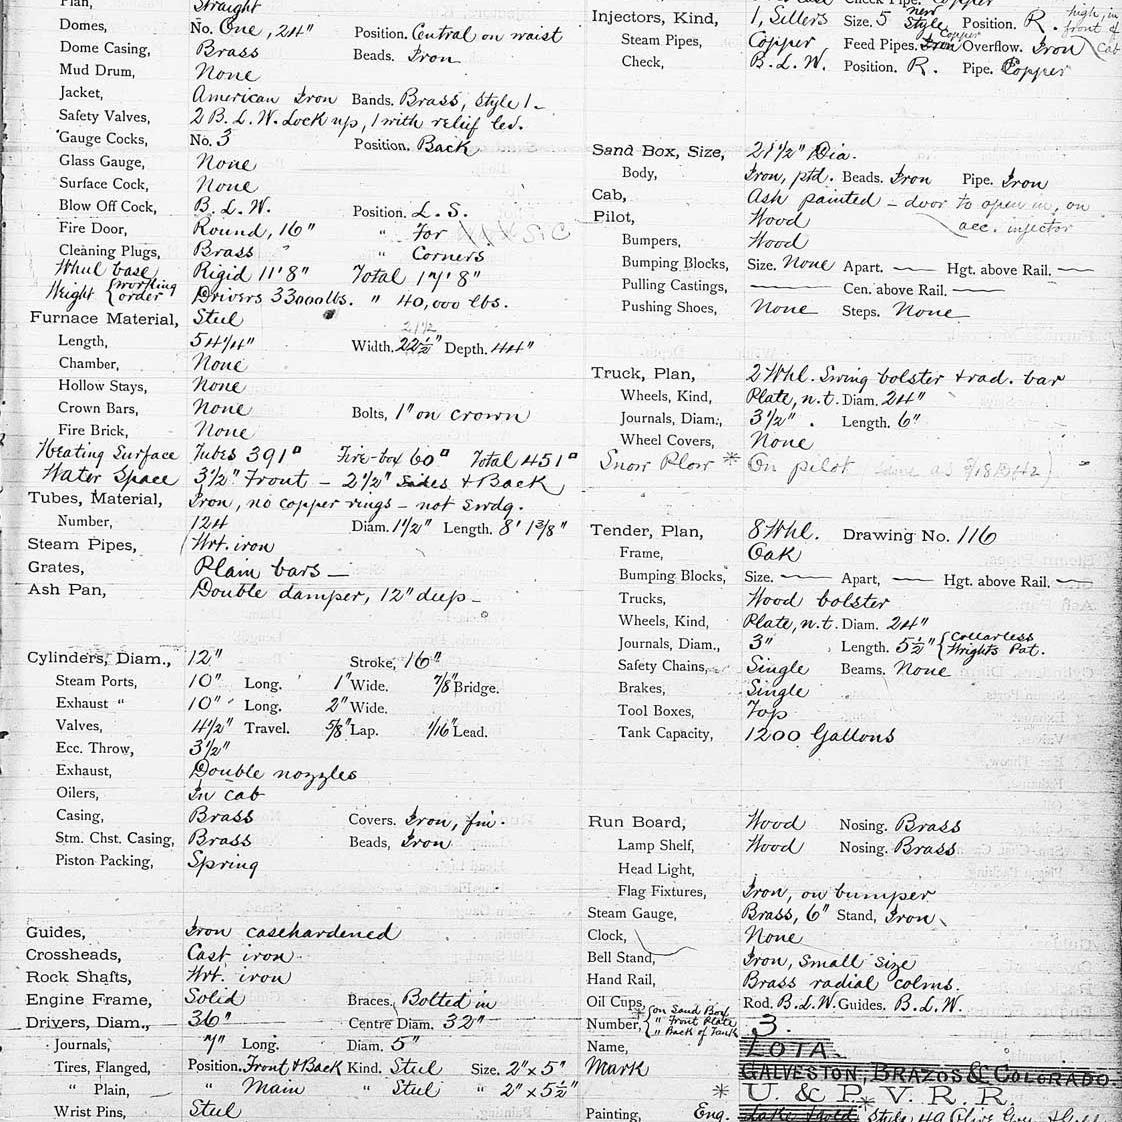 Plan, Straight
Domes, No. One, 24" Position. Central on waist
Dome Casing, Brass Beads. Iron
Mud Drum, None
Jacket, American Iron Bands. Brass, Style 1.
Safety Valves, 2 B.L.W. Lock up, 1 with relief lev.
Gauge Cocks, No. 3 Position. Back
Glass Gauge, None
Surface Cock, None
Blow Off Cock, B.L.W. Position. L.S.
Fire Door, Round, 16" " For
Cleaning Plugs, Brass " " Corners
Wheel base Rigid 11'8" Total 17'8"
Weight {working order Drivers 33000 lbs. " 40,000 lbs.
Furnace Material, Steel
Length, 54 1/4" Width. 22 1/2" 21 1/2 Depth. 44"
Chamber, None
Hollow Stays, None
Crown Bars, None Bolts, 1" on crown
Fire Brick, None
Heating Surface Tubes 391□ Fire-box 60□ Total 451□
Water Space 3 1/2" Front - 2 1/2" Sides & Back
Tubes, Material, Iron, no copper rings - not swdg.
Number, 124 Diam. 1 1/2" Length. 8' 1 3/8"
Steam Pipes, Wrt. iron
Grates, Plain bars
Ash Pan, Double damper, 12" deep
Cylinders, Diam., 12" Stroke, 16"
Steam Ports, 10" Long. 1" Wide. 7/8" Bridge.
Exhaust " 10" Long. 2" Wide.
Valves, 4 1/2" Travel. 5/8" Lap. 1/16" Lead.
Ecc. Throw, 3 1/2"
Exhaust, Double nozzles
Oilers, In cab
Casing, Brass Covers. Iron, fin.
Stm. Chst. Casing, Brass Beads, Iron
Piston Packing, Spring
Guides, Iron casehardened
Crossheads, Cast iron
Rock Shafts, Wrt. iron
Engine Frame, Solid Braces, Bolted in
Drivers, Diam., 36" Centre Diam. 32"
Journals, 7" Long. Diam. 5"
Tires, Flanged, Position. Front & Back Kind. Steel Size. 2" x 5"
" Plain, " Main " Steel " 2" x 5 1/2"
Wrist Pins, Steel
Check Pipe. Copper
Injectors, Kind, 1, Sellers Size. 5 new Style Position. R. high, in front of cab
Steam Pipes, Copper Feed Pipes. Iron Copper Overflow. Iron
Check, B.L.W. Position. R. Pipe. Copper
Sand Box, Size, 21 1/2" Dia.
Body, Iron, ptd. Beads. Iron Pipe. Iron
Cab, Ash painted - door to open in, on acc. injector
Pilot, Wood
Bumpers, Wood
Bumping Blocks, Size. None Apart. — Hgt. above Rail. —
Pulling Castings, — Cen. above Rail. —
Pushing Shoes, None Steps. None
Truck, Plan, 2 Whl. Swing bolster & rad. bar
Wheels, Kind, Plate, n.t. Diam. 24"
Journals, Diam., 3 1/2" . Length. 6"
Wheel Covers, None
Snow Plow * On pilot
Tender, Plan, 8 Whl. Drawing No. 116
Frame, Oak
Bumping Blocks, Size. — Apart, — Hgt. above Rail. —
Trucks, Wood bolster
Wheels, Kind, Plate, n.t. Diam. 24"
Journals, Diam., 3" Length. 5 1/2" {Collarless Wrights Pat.
Safety Chains, Single Beams. None
Brakes, Single
Tool Boxes, Top
Tank Capacity, 1200 Gallons
Run Board, Wood Nosing. Brass
Lamp Shelf, Wood Nosing. Brass
Head Light,
Flag Fixtures, Iron, on bumper
Steam Gauge, Brass, 6" Stand, Iron
Clock, None
Bell Stand, Iron, small size
Hand Rail, Brass radial colms.
Oil Cups, Rod. B.L.W. Guides. B.L.W.
Number, *{on Sand Box " Front Plate " Back of Tank 3.
Name, LOTA.
Mark GALVESTON, BRAZOS & COLORADO.
* U. & P. V. R. R.
Painting, Eng. * Style 49 Olive Gry. & Gold